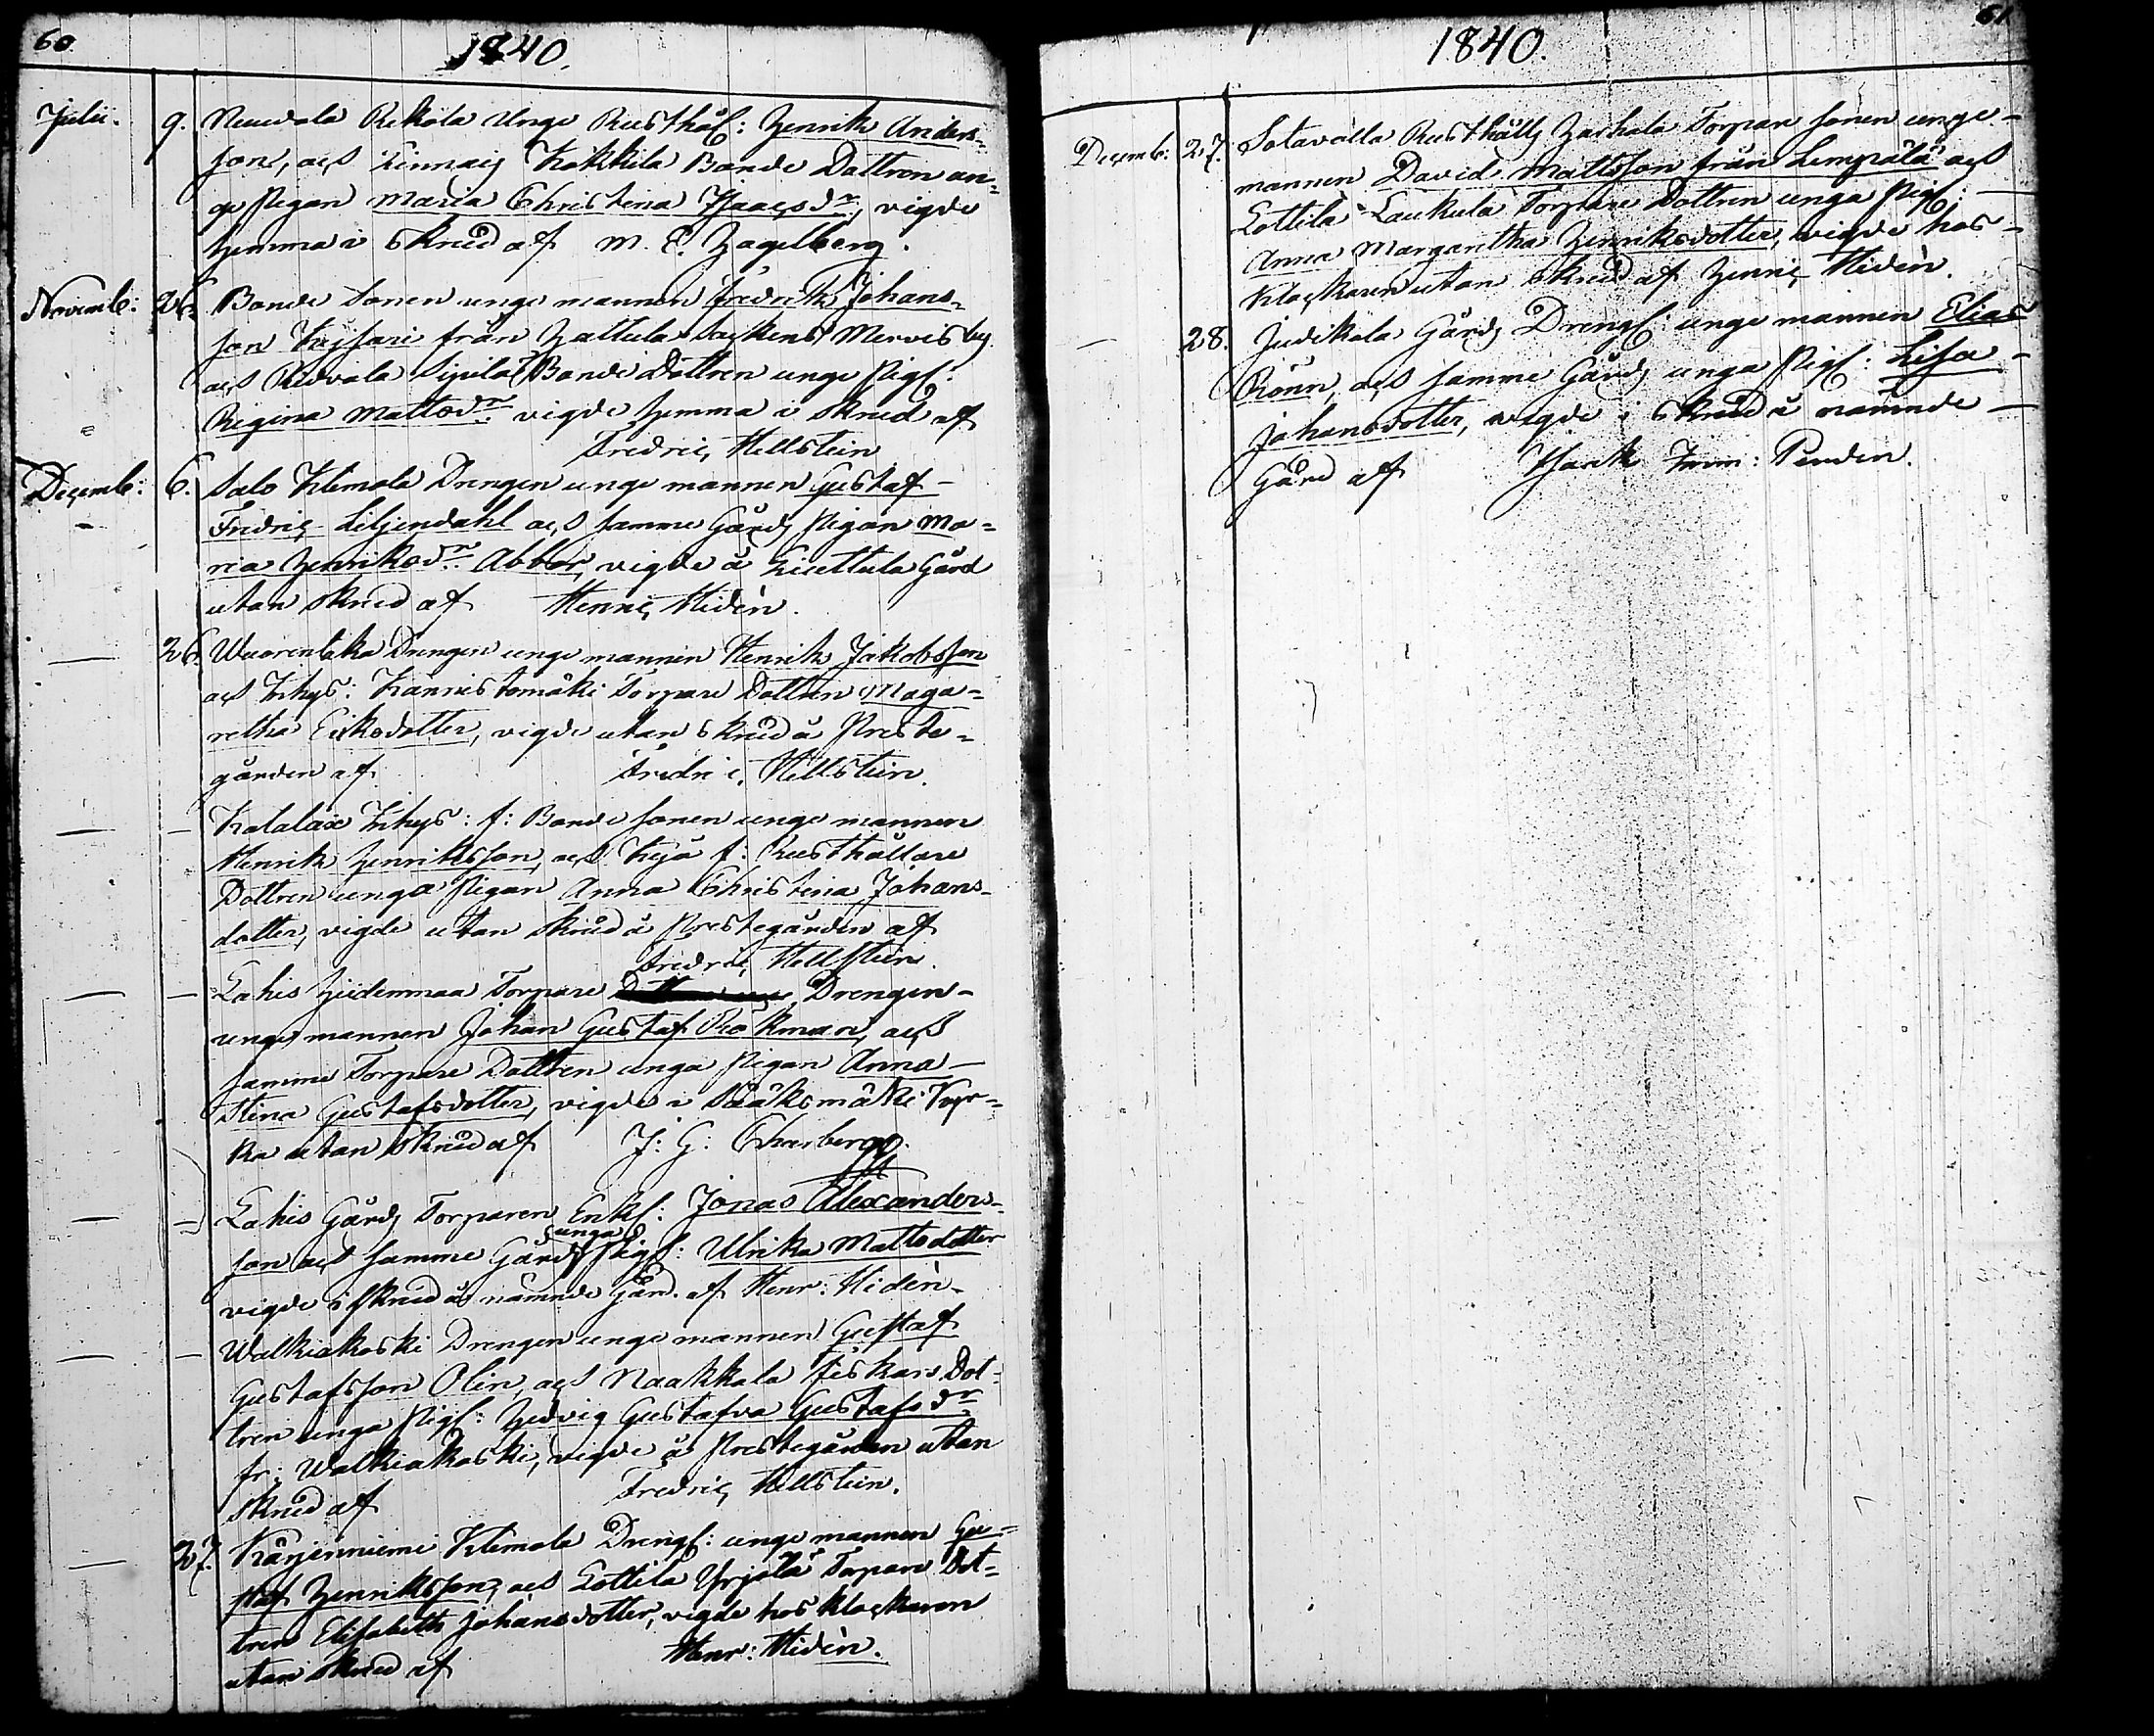 60
1840.
Julii. 9. Rekola Unge Rusthåll: Henrik Anders-
son, och Kokkila Bonde Dottren un-
ge Pigan Maria Christina Isaacsdr, vigde
hemma i skrud af M. E. Hagelberg.
Novemb: Bonde Sonen unge mannen Fredrik Johans-
son från Hattula Sockens Mervis by
och Ridvala Sipilä Bonde Dottren unge Pig:
Regina Mattsdr vigde hemma i skrud af
Fredric Hellstein
Decemb: 6. Salo Klemola Drengen unge mannen Gustaf
Fredric Liljendahl och samma Gårds Pigan Ma=
ria Henriksdr Abbor, vigde å Gård
utan skrud af Henric Hidén.
26. Wuorentaka Drengen unge mannen Henrik Jakobsson
och Kannistomäki Torpare Dottren Maga=
retha Eriksdotter, vigde utan skrud å Preste=
gården af Fredric Hellstein.
Kalalax f: Bonde sonen unge mannen
Henrik Henriksson, och f: Rusthållare
Dottren unga Pigan Anna Christina Johans-
dotter, vigde utan skrud å Prestegården af
Fredric Hellstein.
Lahis Torpare Drengen
unge mannen Johan Gustaf Rökman, och
samma Torpare Dottren unga Pigan Anna
Stina Gustafsdotter, vigde i Sääksmäki Kyr=
ka utan skrud af J: G:
Lahis Gårds Torparen Enkl: Jonas Alexanders-
son och samma Gårds unga Pig: Ulrika Mattsdotter
vigde i skrud å nämnde Gård af Henr: Hidén.
Walkiakoski Drengen unge mannen Gustaf
Gustafsson Olin, och Naakkala Fiskars Dot-
tren unga Pig: Hedvig Gustafva Gustafsdr
fr: Walkiakoski, vigde å Prestegården utan
skrud af Fredric Hellstein.
27. Kärjenniemi Klemola Dreng: unge mannen Gu=
staf Henriksson, och Lottila Yrjölä Torpare Dot=
tren Elisabeth Johansdotter, vigde hos Klockaren
utan skrud af Henr: Hidén.
61
1840.
Decemb: 27. Sotavalla Rusthålls Torpare sonen unge
mannen David Mattsson från Lempälä och
Lottila Laukula Torpare Dottren unga Pig:
Anna Margaretha Henriksdotter, vigde hos
Klockaren utan skrud af Henric Hidén.
28. Jutikala Gårds Dreng: unge mannen Elias
Rönn, och samma Gårds unga Pig: Lisa
Johansdotter, vigde i skrud å nämnde
Gård af Isack Imm: